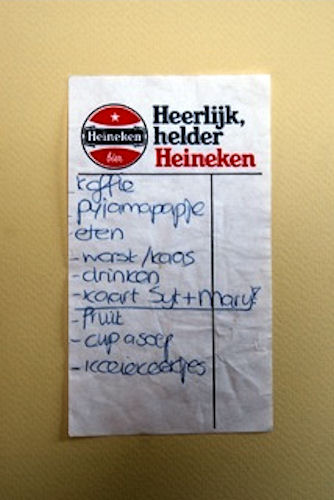 Heerlijk,
helder
Heineken
Heineken
bier
koffie
pyjamapapje
eten
- worst/kaas
- drinken
- kaart Syt + Mary?
- fruit
- cup a soep
- koeiekoekjes